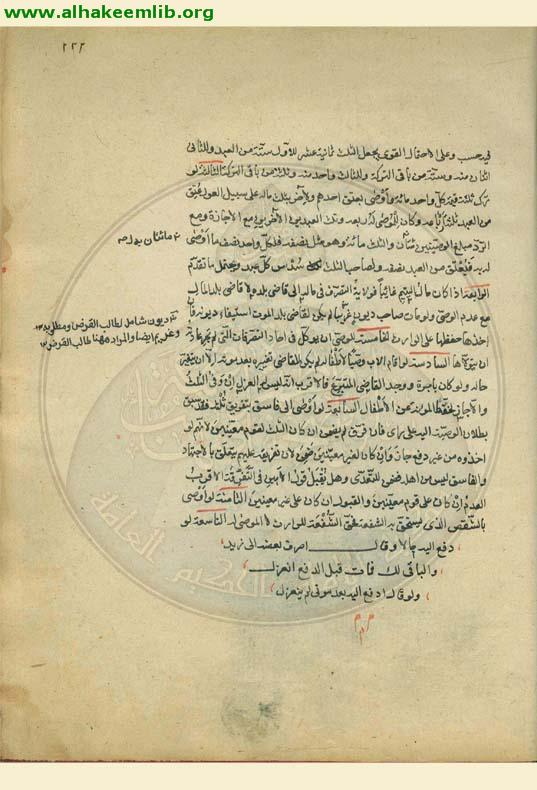 www.alhakeemlib.org
٢٢٢
فيه حسب وعلى الاحتمال القوي يجعل الثلث ثمانية عشر للأول ستة من العبد وللثاني
اثنان منه وستة من باقي التركة وللثالث واحد منه وثلثة من باقي التركة الثالثة لو
ترك ثلثة قيمة كل واحد مائة وأوصى بعتق احدهم ولآخر بثلث ماله على سبيل العول عتق
من العبد ثلثة أرباعه وكان للموصى له ربعه وثلث العبدين الآخرين مع الاجازة ومع
الرد مبلغ الوصيتين مائتان والثلث مائة وهو مثل نصفه فلكل واحد نصف ما أوصى
له به فينعتق من العبد نصفه ولصاحب الثلث سدس كل عبد ويحتمل ما تقدم
الرابعة اذا كان مال اليتيم غائبا فولاية التصرف في ماله الى قاضي بلده لا قاضي بلد المال
مع عدم الوصي ولو مات صاحب ديون غريبا لم يكن لقاضي بلد الموت استيفاء ديونه فان
اخذها حفظها على الوارث الخامسة للوصي ان يوكل في آحاد التصرفات التي لم تجر عادته
ان يتولاها السادسة لو اقام الاب وصيا لاطفاله لم يكن للقاضي تغييره بعد موته الا ان يتغير
حاله ولو كان باجرة ووجد القاضي المتبرع فالاقرب انه ليس له العزل ان وفى الثلث
والا جاز لحفظ المؤنة عن الأطفال السابعة لو أوصى الى فاسق بتفريق ثلثه فقد سبق
بطلان الوصية اليه على رأي فان فرق لم يضمن ان كان الثلث لقوم معينين لانهم لو
اخذوه من غير دفع جاز وان كان لغير معينين ضمن لان تفريقه عليهم يتعلق بالاجتهاد
والفاسق ليس من اهله ضمن للتعدي وهل يقبل قول الامين في التفرقة الاقرب
العدم ان كان على قوم معينين والقبول ان كان على غير معينين الثامنة لو أوصى
بالشقص الذي يستحق به الشفعة فحق الشفعة للوارث لا الموصى له التاسعة لو
دفع اليه مالا وقال اصرف بعضه الى زيد
والباقي لك فمات قبل الدفع انعزل
ولو قال ادفع اليه بعد موتي لم ينعزل
م م
م
مائتان
ديون شامل لطالب القرض ومطلوبه
وغريم ايضا والمراد ههنا طالب القرض